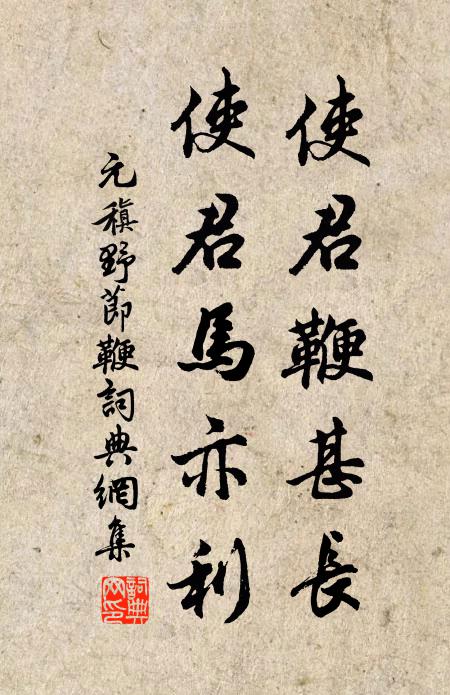 使君鞭甚長
使君馬亦利
元稹野節鞭詞典網集
詞典網印